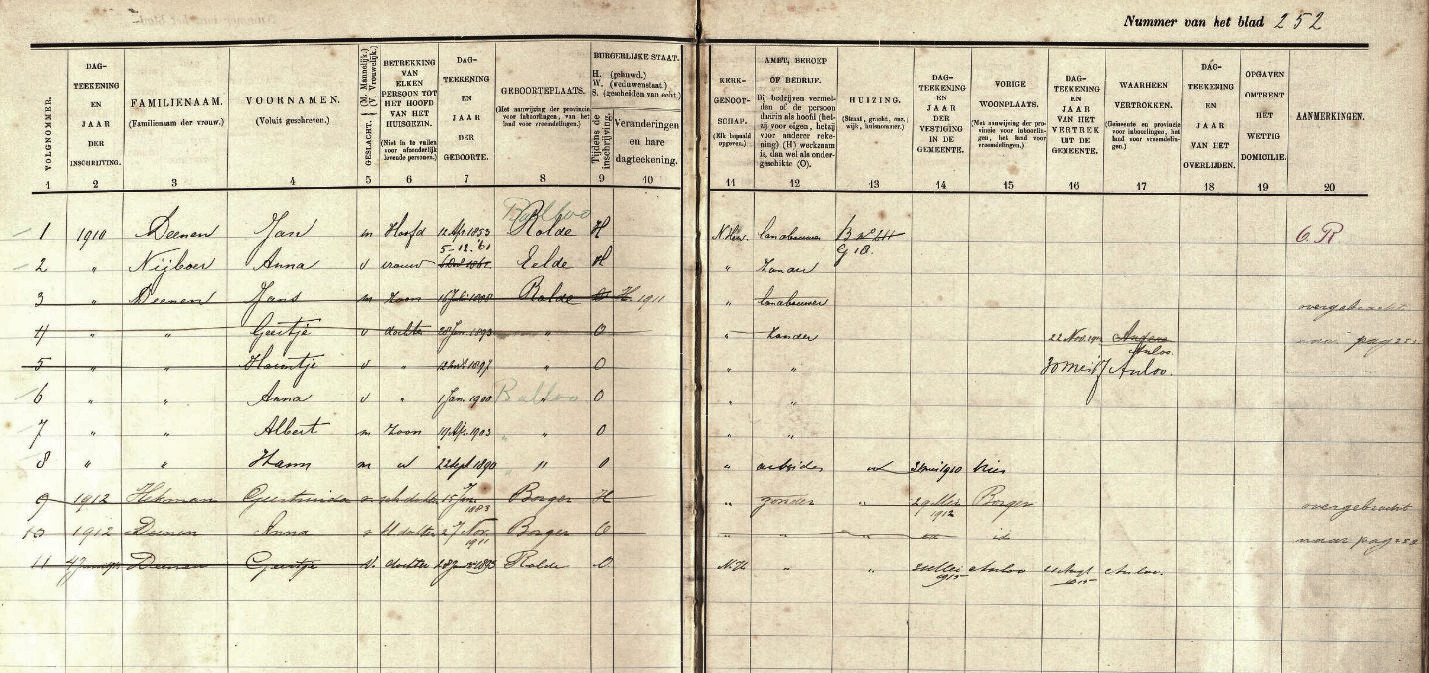 Nummer van het blad 252
VOLGNOMMER.
DAG-
TEEKENING
EN
JAAR
DER
INSCHRIJVING.
FAMILIENAAM.
(Familienaam der vrouw.)
VOORNAMEN.
(Voluit geschreven.)
GESLACHT. (M. Mannelijk.) (V. Vrouwelijk.)
BETREKKING
VAN
ELKEN
PERSOON TOT
HET HOOFD
VAN HET
HUISGEZIN.
(Niet in te vullen
voor afzonderlijk
levende personen.)
DAG-
TEEKENING
EN
JAAR
DER
GEBOORTE.
GEBOORTEPLAATS.
(Met aanwijzing der provincie
voor inboorlingen, van het
land voor vreemdelingen.)
BURGERLIJKE STAAT.
H. (gehuwd.)
W. (weduwenstaat.)
S. (gescheiden van echt.)
Tijdens de
inschrijving.
Veranderingen
en hare
dagteekening.
KERK-
GENOOT-
SCHAP.
(Elk bepaald
opgeven.)
AMBT, BEROEP
OF BEDRIJF.
Bij bedrijven vermel-
den of de persoon
daarin als hoofd (het-
zij voor eigen, hetzij
voor anderer reke-
ning) (H) werkzaam
is, dan wel als onder-
geschikte (O).
HUIZING.
(Straat, gracht, enz.,
wijk, huisnummer.)
DAG-
TEEKENING
EN
JAAR
DER
VESTIGING
IN DE
GEMEENTE.
VORIGE
WOONPLAATS.
(Met aanwijzing der pro-
vincie voor inboorlin-
gen, het land voor
vreemdelingen.)
DAG-
TEEKENING
EN
JAAR
VAN HET
VERTREK
UIT DE
GEMEENTE.
WAARHEEN
VERTROKKEN.
(Gemeente en provincie
voor inboorlingen, het
land voor vreemdelin-
gen.)
DAG-
TEEKENING
EN
JAAR
VAN HET
OVERLIJDEN.
OPGAVEN
OMTRENT
HET
WETTIG
DOMICILIE.
AANMERKINGEN.
1 2 3 4 5 6 7 8 9 10 11 12 13 14 15 16 17 18 19 20
Balloo
1 1910 Deenen Jan m Hoofd 12 Apr 1853 Rolde H N Herv. landbouwer B G 18. G. R
5-12.'61
2 " Nijboer Anna v vrouw Eelde H " Zonder
3 " Deenen Jans m Zoon Rolde H 1911 " landbouwer overgebracht
4 " " Geertje v dochter 28 Jan. 1893 " O " Zonder 22 Nov. Anloo. naar pag 252
5 " " v " 1897 " O " " 30 mei Anloo.
6 " " Anna v " 1 Jan. 1900 Balloo O " "
7 " " Albert m Zoon 19 Apr. 1903 " O " "
8 " " Harm m id 22 Sept 1890 " O " arbeider id mei 1910
9 1912 Hekman Geertruida v dochter 15 Jan 1883 Borger H " zonder 29 Mei 1912 Borger overgebracht
10 1912 Deenen Anna v dochter 27 Nov. 1911 Borger O " " " id naar pag 252
11 Deenen Geertje v. dochter 28 Jan 1893 Rolde O N.H. " " Mei 1915 Anloo 1915 Anloo.